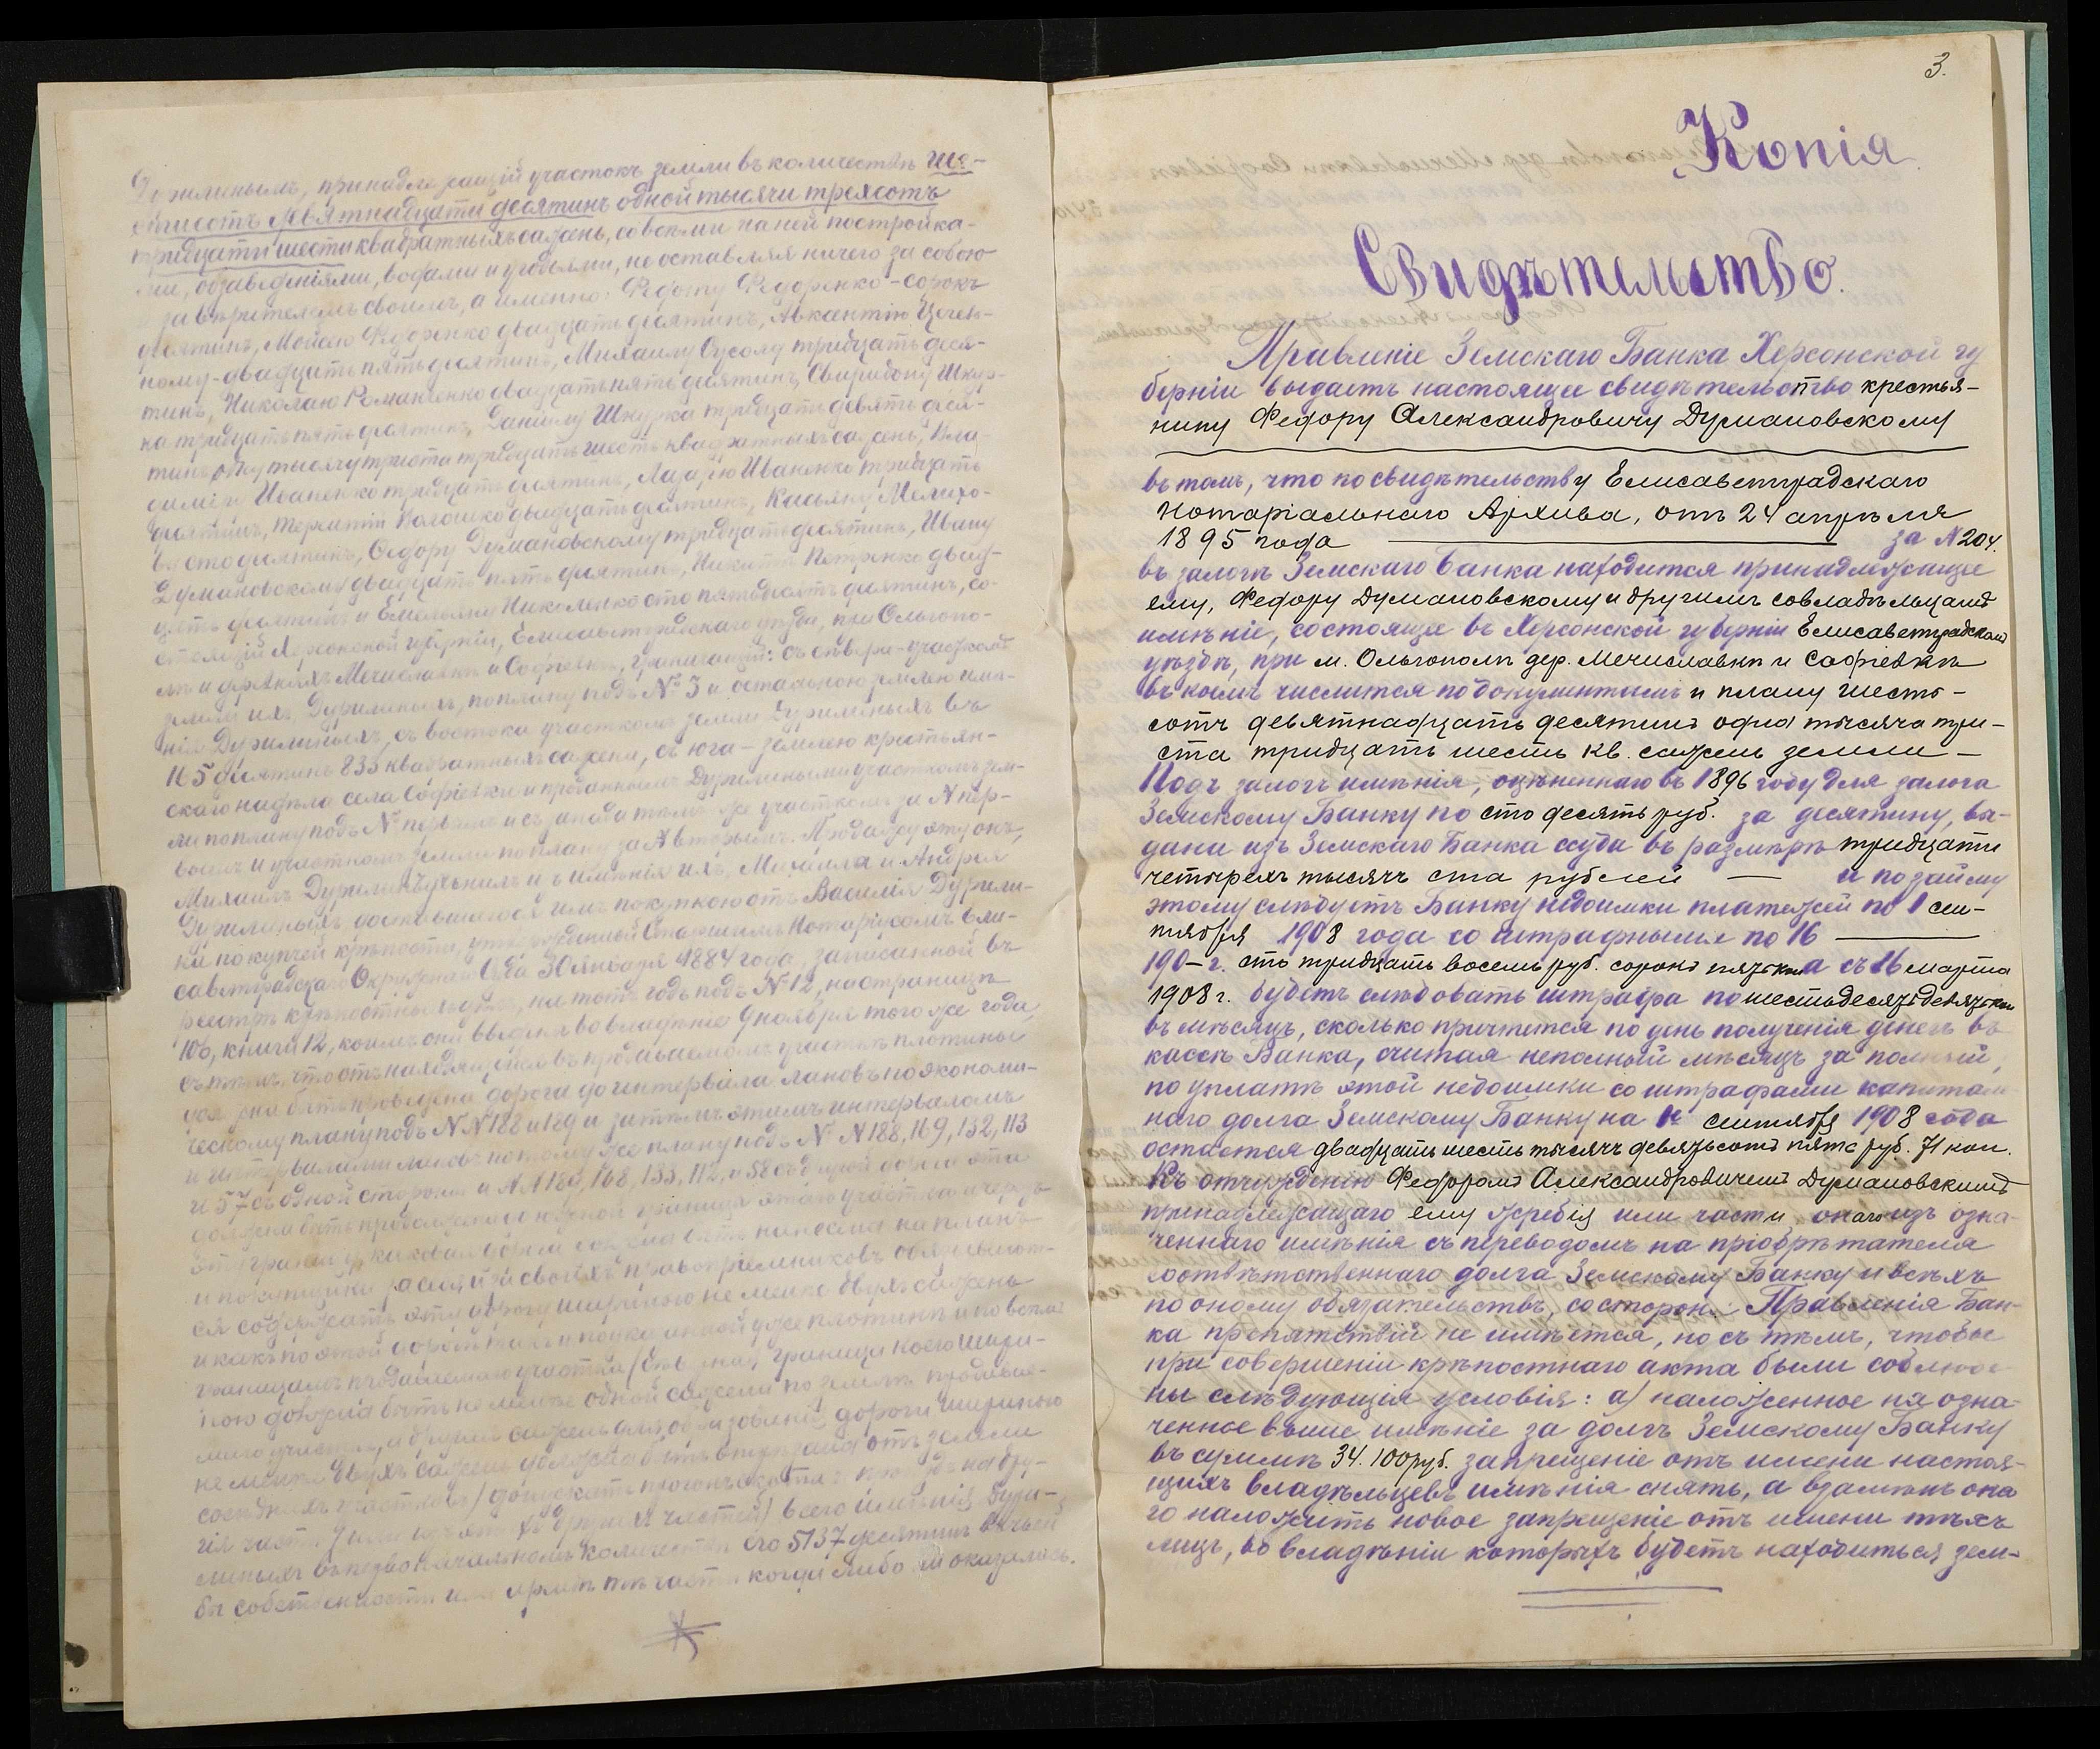 принадлежащій участокъ земли въ количествѣ ше-
стисотъ девятнадцати десятинъ одной тысячи трехсотъ
тридцати шести квадратныхъ сажень, со всѣми на ней постройка-
ми, обзаведеніями, водами и угодьями, не оставляя ничего за собою
и довѣрителемъ своимъ, а именно: Федоту Федоренко - сорокъ
десятинъ, Федоренко двадцать десятинъ, Авксентію
ному - двадцать пять десятинъ, Михаилу тридцать деся-
тинъ, Николаю Романченко двадцать пять десятинъ, Свиридону Шкур-
ка тридцать пять десятинъ, Даніилу Шкурка тридцать девять деся-
тинъ одну тысячу триста тридцать шесть квадратныхъ сажень, Вла-
диміру Иваненко тридцать десятинъ, Иваненко тридцать
десятинъ, Терентію двадцать десятинъ, Касьяну
сто десятинъ, Федору Думановскому тридцать десятинъ, Ивану
Думановскому двадцать пять десятинъ, Никитѣ Петренко двад-
цать десятинъ и Емельяну Николенко сто пятьдесятъ десятинъ, со-
стоящій Херсонской губерніи, Елисаветградскаго уѣзда, при Ольгопо-
лѣ и деревняхъ Мечиславкѣ и Софіевкѣ, граничащій: съ сѣвера - участкомъ
земли ихъ, Дурилиныхъ, по плану подъ № 3 и остальною землею имѣ-
нія Дурилиныхъ, съ востока участкомъ земли Дурилиныхъ въ
165 десятинъ 833 квадратныхъ сажени, съ юга - землею крестьян-
скаго надѣла села Софіевки и проданнымъ Дурилиными участкомъ зем-
ли по плану подъ № первымъ и съ запада тѣмъ же участкомъ за № пер-
вымъ и участкомъ земли по плану за № вторымъ. Продажу эту онъ,
Михаилъ Дурилинъ, учинилъ изъ имѣнія ихъ, Михаила и Андрея
Дурилиныхъ, доставшагося имъ покупкою отъ Василія Дурили-
на по купчей крѣпости, утвержденной Старшимъ Нотаріусомъ Ели-
саветградскаго Окружнаго Суда 30 января 1884 года, записанной въ
реестръ крѣпостныхъ дѣлъ, на тотъ годъ подъ № 12, на страницѣ
106, книги 12, коимъ они введены во владѣніе 9 ноября того же года,
съ тѣмъ, что отъ находящейся въ продаваемомъ участкѣ плотины
должна быть проведена дорога до интервала лановъ по экономи-
ческому плану подъ №№ 188 и 189 и затѣмъ этимъ интерваломъ
и интервалами лановъ по тому же плану подъ № № 188, 169, 132, 113
и 57 съ одной стороны и №№ 189, 168, 133, 112, и 58 съ другой дорога эта
должна быть продолжена до южной границы этого участка и черезъ
эту границу, каковая дорога должна быть нанесена на планъ
и покупщики за себя и за своихъ правопріемниковъ обязываются
ся содержать эту дорогу шириною не менѣе двухъ сажень
и какъ по этой дорогѣ такъ и по указанной уже плотинѣ и по всѣмъ
границамъ продаваемаго участка
ною должна быть не менѣе одной сажени по землѣ продавае-
маго участка, а другая сажень для образованія дороги шириною
не менѣе двухъ сажень должна быть отрѣзана отъ земли
сосѣднихъ участковъ
гія части всего имѣнія Дури-
линыхъ въ первоначальномъ количествѣ его 5137 десятинъ въ чьей
бы собственности или арендѣ тѣ части когда либо ни оказались.
3.
Копія
Свидѣтельство.
Правленіе Земскаго Банка Херсонской гу
берніи выдаетъ настоящее свидѣтельство крестья-
нину Федору Александровичу Думановскому
въ томъ, что по свидѣтельству Елисаветградскаго
Нотаріальнаго Архива, отъ 24 апрѣля
1895 года за № 204.
въ залогѣ Земскаго Банка находится принадлежащее
ему, Федору Думановскому и другимъ совладѣльцамъ
имѣніе, состоящее въ Херсонской губерніи Елисаветградскомъ
уѣздѣ, при м. Ольгополѣ дер. Мечиславкѣ и Софіевкѣ
въ коемъ числится по документамъ и плану шесть-
сотъ девятнадцать десятинъ одна тысяча три-
ста тридцать шесть кв. сажень земли -
Подъ залогъ имѣнія, оцѣненнаго въ 1896 году для залога
Земскому Банку по сто десять руб. за десятину, вы-
дана изъ Земскаго Банка ссуда въ размѣрѣ тридцати
четырехъ тысячъ ста рублей — и по займу
этому слѣдуетъ Банку недоимки платежей по 1 сен-
тября 1908 года со штрафными по 16
190-г. сто тридцать восемь руб. сорокъ пять коп. а съ 16 марта
1908 г. будетъ слѣдовать штрафа по шестьдесятъ девять коп.
въ мѣсяцъ, сколько причтется по день полученія денегъ въ
кассѣ Банка, считая неполный мѣсяцъ за полный,
по уплатѣ этой недоимки со штрафами капиталь
наго долга Земскому Банку на 1е сентября 1908 года
остается двадцать шесть тысячъ девятьсотъ пять руб. 71 коп.
Къ отчужденію Федоромъ Александровичемъ Думановскимъ
принадлежащаго ему жребія или части онаго изъ озна-
ченнаго имѣнія съ переводомъ на пріобрѣтателя
соотвѣтственнаго долга Земскому Банку и всѣхъ
по оному обязательствъ, со стороны Правленія Бан-
ка препятствій не имѣется, но съ тѣмъ, чтобы
при совершеніи крѣпостнаго акта были соблюде-
ны слѣдующія условія: а) наложенное на озна-
ченное выше имѣніе за долгъ Земскому Банку
въ суммѣ 34.100 руб. запрещеніе отъ имени настоя-
щихъ владѣльцевъ имѣнія снять, а взамѣнъ она
го наложить новое запрещеніе отъ имени тѣхъ
лицъ, во владѣніи которыхъ будетъ находиться зем-